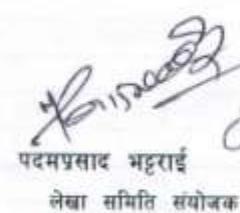 पदमप्रसाद भट्टराई
लेखा समिति संयोजक